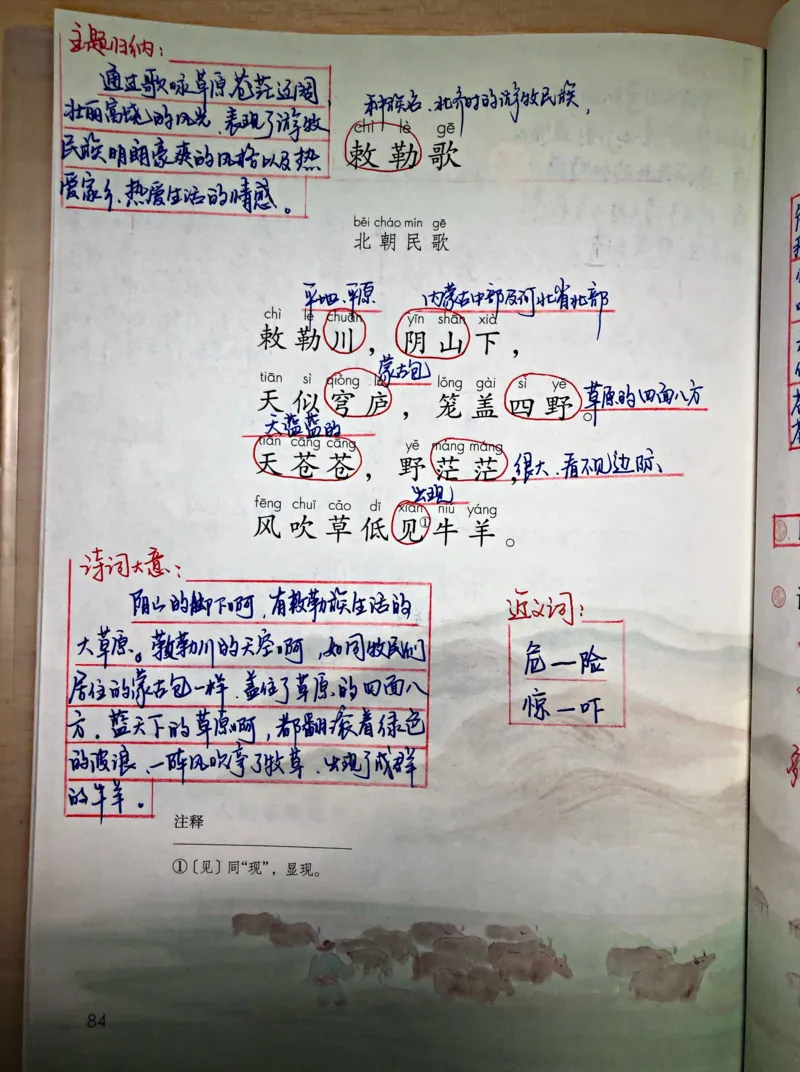 主题归纳：
通过歌咏草原苍茫辽阔
壮丽富饶的风光，表现了游牧
民族明朗豪爽的风格以及热
爱家乡、热爱生活的情感。
种族名、北齐时的游牧民族，
chì lè gē
敕勒歌
běi cháo mín gē
北朝民歌
平地、平原 内蒙古中部及河北省北部
chì lè chuān yīn shān xià
敕勒川，阴山下，
蒙古包
tiān sì qióng lú lǒng gài sì yě
天似穹庐，笼盖四野。
草原的四面八方
天蓝蓝的
tiān cāng cāng yě máng máng
天苍苍，野茫茫，
很大、看不见边际、
出现
fēng chuī cǎo dī xiàn niú yáng
风吹草低见①牛羊。
诗词大意：
阴山的脚下啊，有敕勒族生活的
大草原。敕勒川的天空啊，如同牧民们
居住的蒙古包一样，盖住了草原的四面八
方，蓝天下的草原啊，都翻滚着绿色
的波浪、一阵风吹弯了牧草、出现了成群
的牛羊。
近义词：
危—险
惊—吓
注释
①〔见〕同“现”，显现。
84